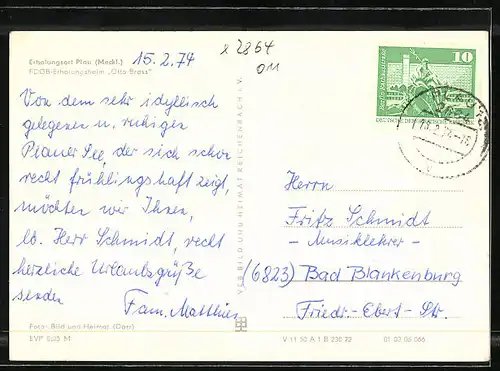 Erholungsort Plau (Meckl.)
FDGB-Erholungsheim „Otto Brass"
15.2.74
x 2864
Von dem sehr idyllisch
gelegenen u. ruhigen
Planer See, der sich schon
recht frühlingshaft zeigt,
möchten wir Ihnen,
lb. Herr Schmidt, recht
herzliche Urlaubsgrüße
senden
Fam. Matthies
Foto: Bild und Heimat (Darr)
EVP 0,20 M
VEB BILD UND HEIMAT REICHENBACH i. V.
10
DEUTSCHE DEMOKRATISCHE
Herrn
Fritz Schmidt
- Musiklehrer -
(6823) Bad Blankenburg
Friedr.-Ebert-Str.
V 11 50 A 1 B 230 72
01 03 06 066